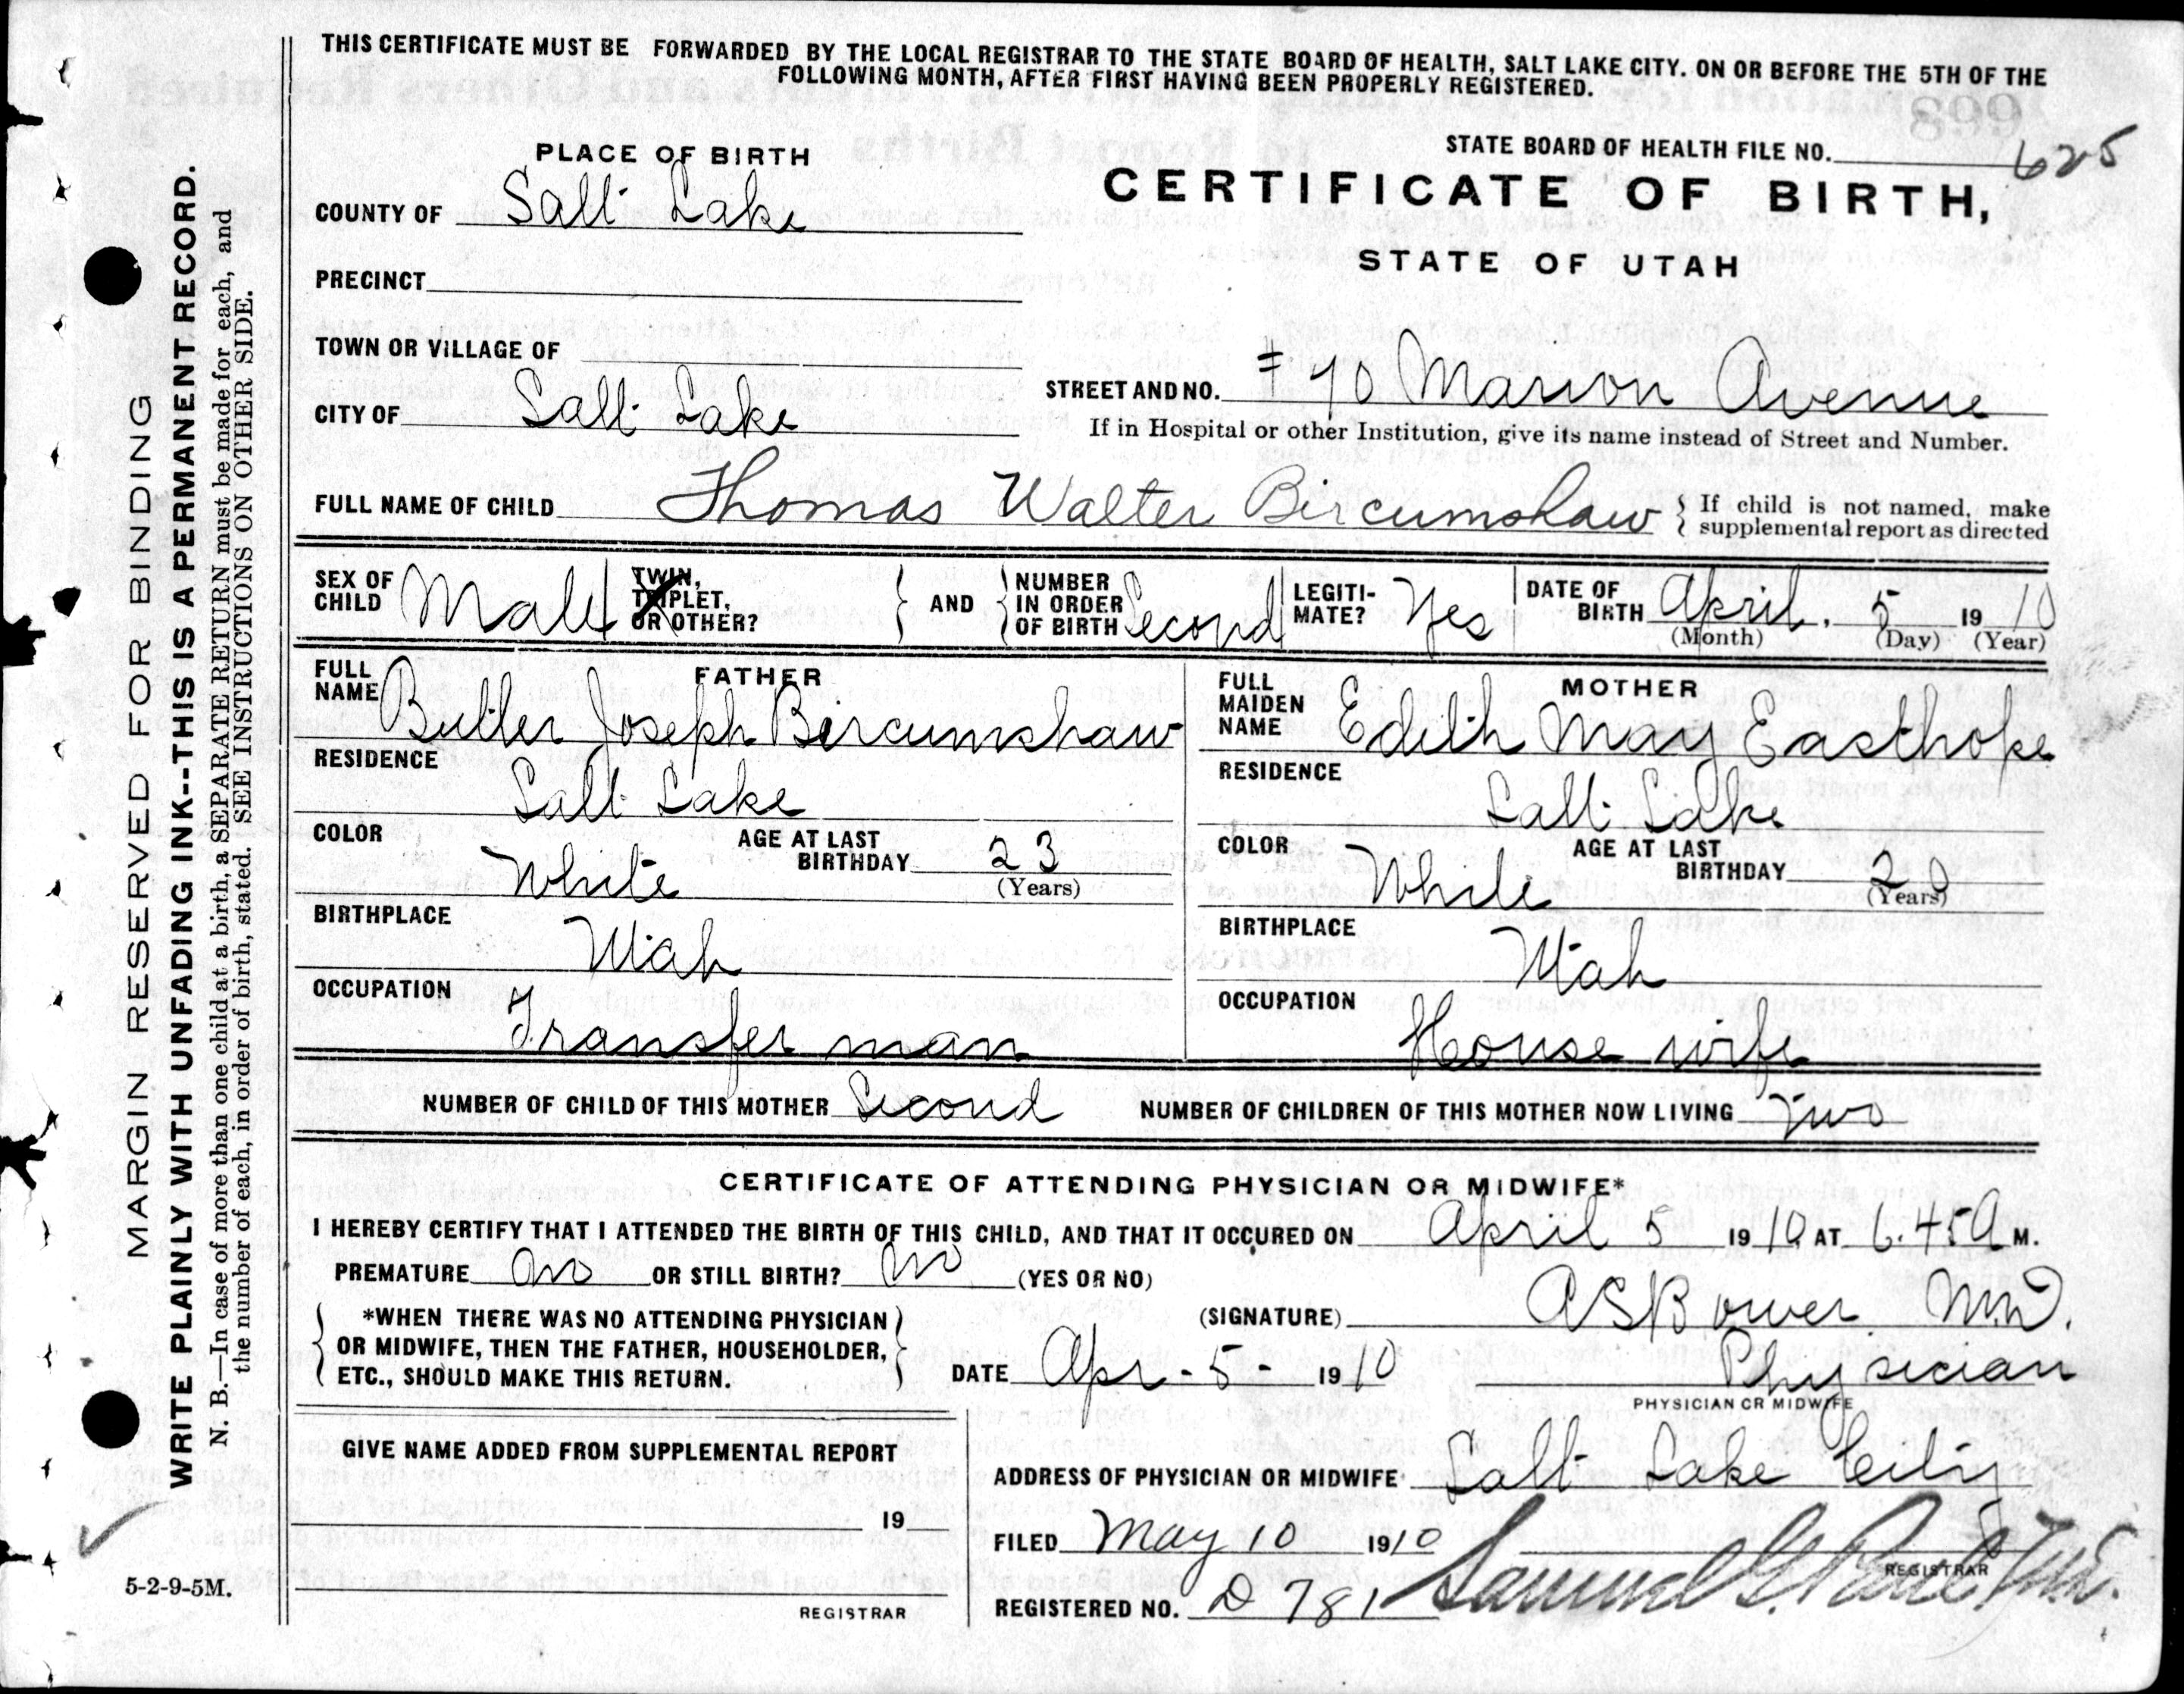 THIS CERTIFICATE MUST BE FORWARDED BY THE LOCAL REGISTRAR TO THE STATE BOARD OF HEALTH, SALT LAKE CITY. ON OR BEFORE THE 5TH OF THE
FOLLOWING MONTH, AFTER FIRST HAVING BEEN PROPERLY REGISTERED.
PLACE OF BIRTH
STATE BOARD OF HEALTH FILE NO. 625
COUNTY OF Salt Lake
CERTIFICATE OF BIRTH,
STATE OF UTAH
PRECINCT
TOWN OR VILLAGE OF
CITY OF Salt Lake
STREET AND NO. # 70 Marion Avenue
If in Hospital or other Institution, give its name instead of Street and Number.
FULL NAME OF CHILD Thomas Walter Bircumshaw { If child is not named, make
supplemental report as directed
SEX OF CHILD Male
TWIN, TRIPLET, OR OTHER?
} AND {
NUMBER IN ORDER OF BIRTH Second
LEGITIMATE? Yes
DATE OF BIRTH April. 5 1910
(Month) (Day) (Year)
FATHER
FULL NAME Butler Joseph Bircumshaw
RESIDENCE
Salt Lake
COLOR White
AGE AT LAST BIRTHDAY 23
(Years)
BIRTHPLACE
Utah
OCCUPATION
Transfer man
MOTHER
FULL MAIDEN NAME Edith May Easthope
RESIDENCE
Salt Lake
COLOR White
AGE AT LAST BIRTHDAY 20
(Years)
BIRTHPLACE
Utah
OCCUPATION
House wife
NUMBER OF CHILD OF THIS MOTHER Second NUMBER OF CHILDREN OF THIS MOTHER NOW LIVING Two
CERTIFICATE OF ATTENDING PHYSICIAN OR MIDWIFE*
I HEREBY CERTIFY THAT I ATTENDED THE BIRTH OF THIS CHILD, AND THAT IT OCCURED ON April 5 1910 AT 6.45 A M.
PREMATURE no OR STILL BIRTH? no (YES OR NO)
{ *WHEN THERE WAS NO ATTENDING PHYSICIAN
OR MIDWIFE, THEN THE FATHER, HOUSEHOLDER,
ETC., SHOULD MAKE THIS RETURN. }
(SIGNATURE) A S Bower M.D.
DATE Apr - 5 - 1910
Physician
PHYSICIAN OR MIDWIFE
GIVE NAME ADDED FROM SUPPLEMENTAL REPORT
19
REGISTRAR
ADDRESS OF PHYSICIAN OR MIDWIFE Salt Lake City
FILED May 10 1910
REGISTRAR
REGISTERED NO. D 781 Samuel G. Paul M.D.
MARGIN RESERVED FOR BINDING
WRITE PLAINLY WITH UNFADING INK--THIS IS A PERMANENT RECORD.
N. B.—In case of more than one child at a birth, a SEPARATE RETURN must be made for each, and
the number of each, in order of birth, stated. SEE INSTRUCTIONS ON OTHER SIDE.
5-2-9-5M.